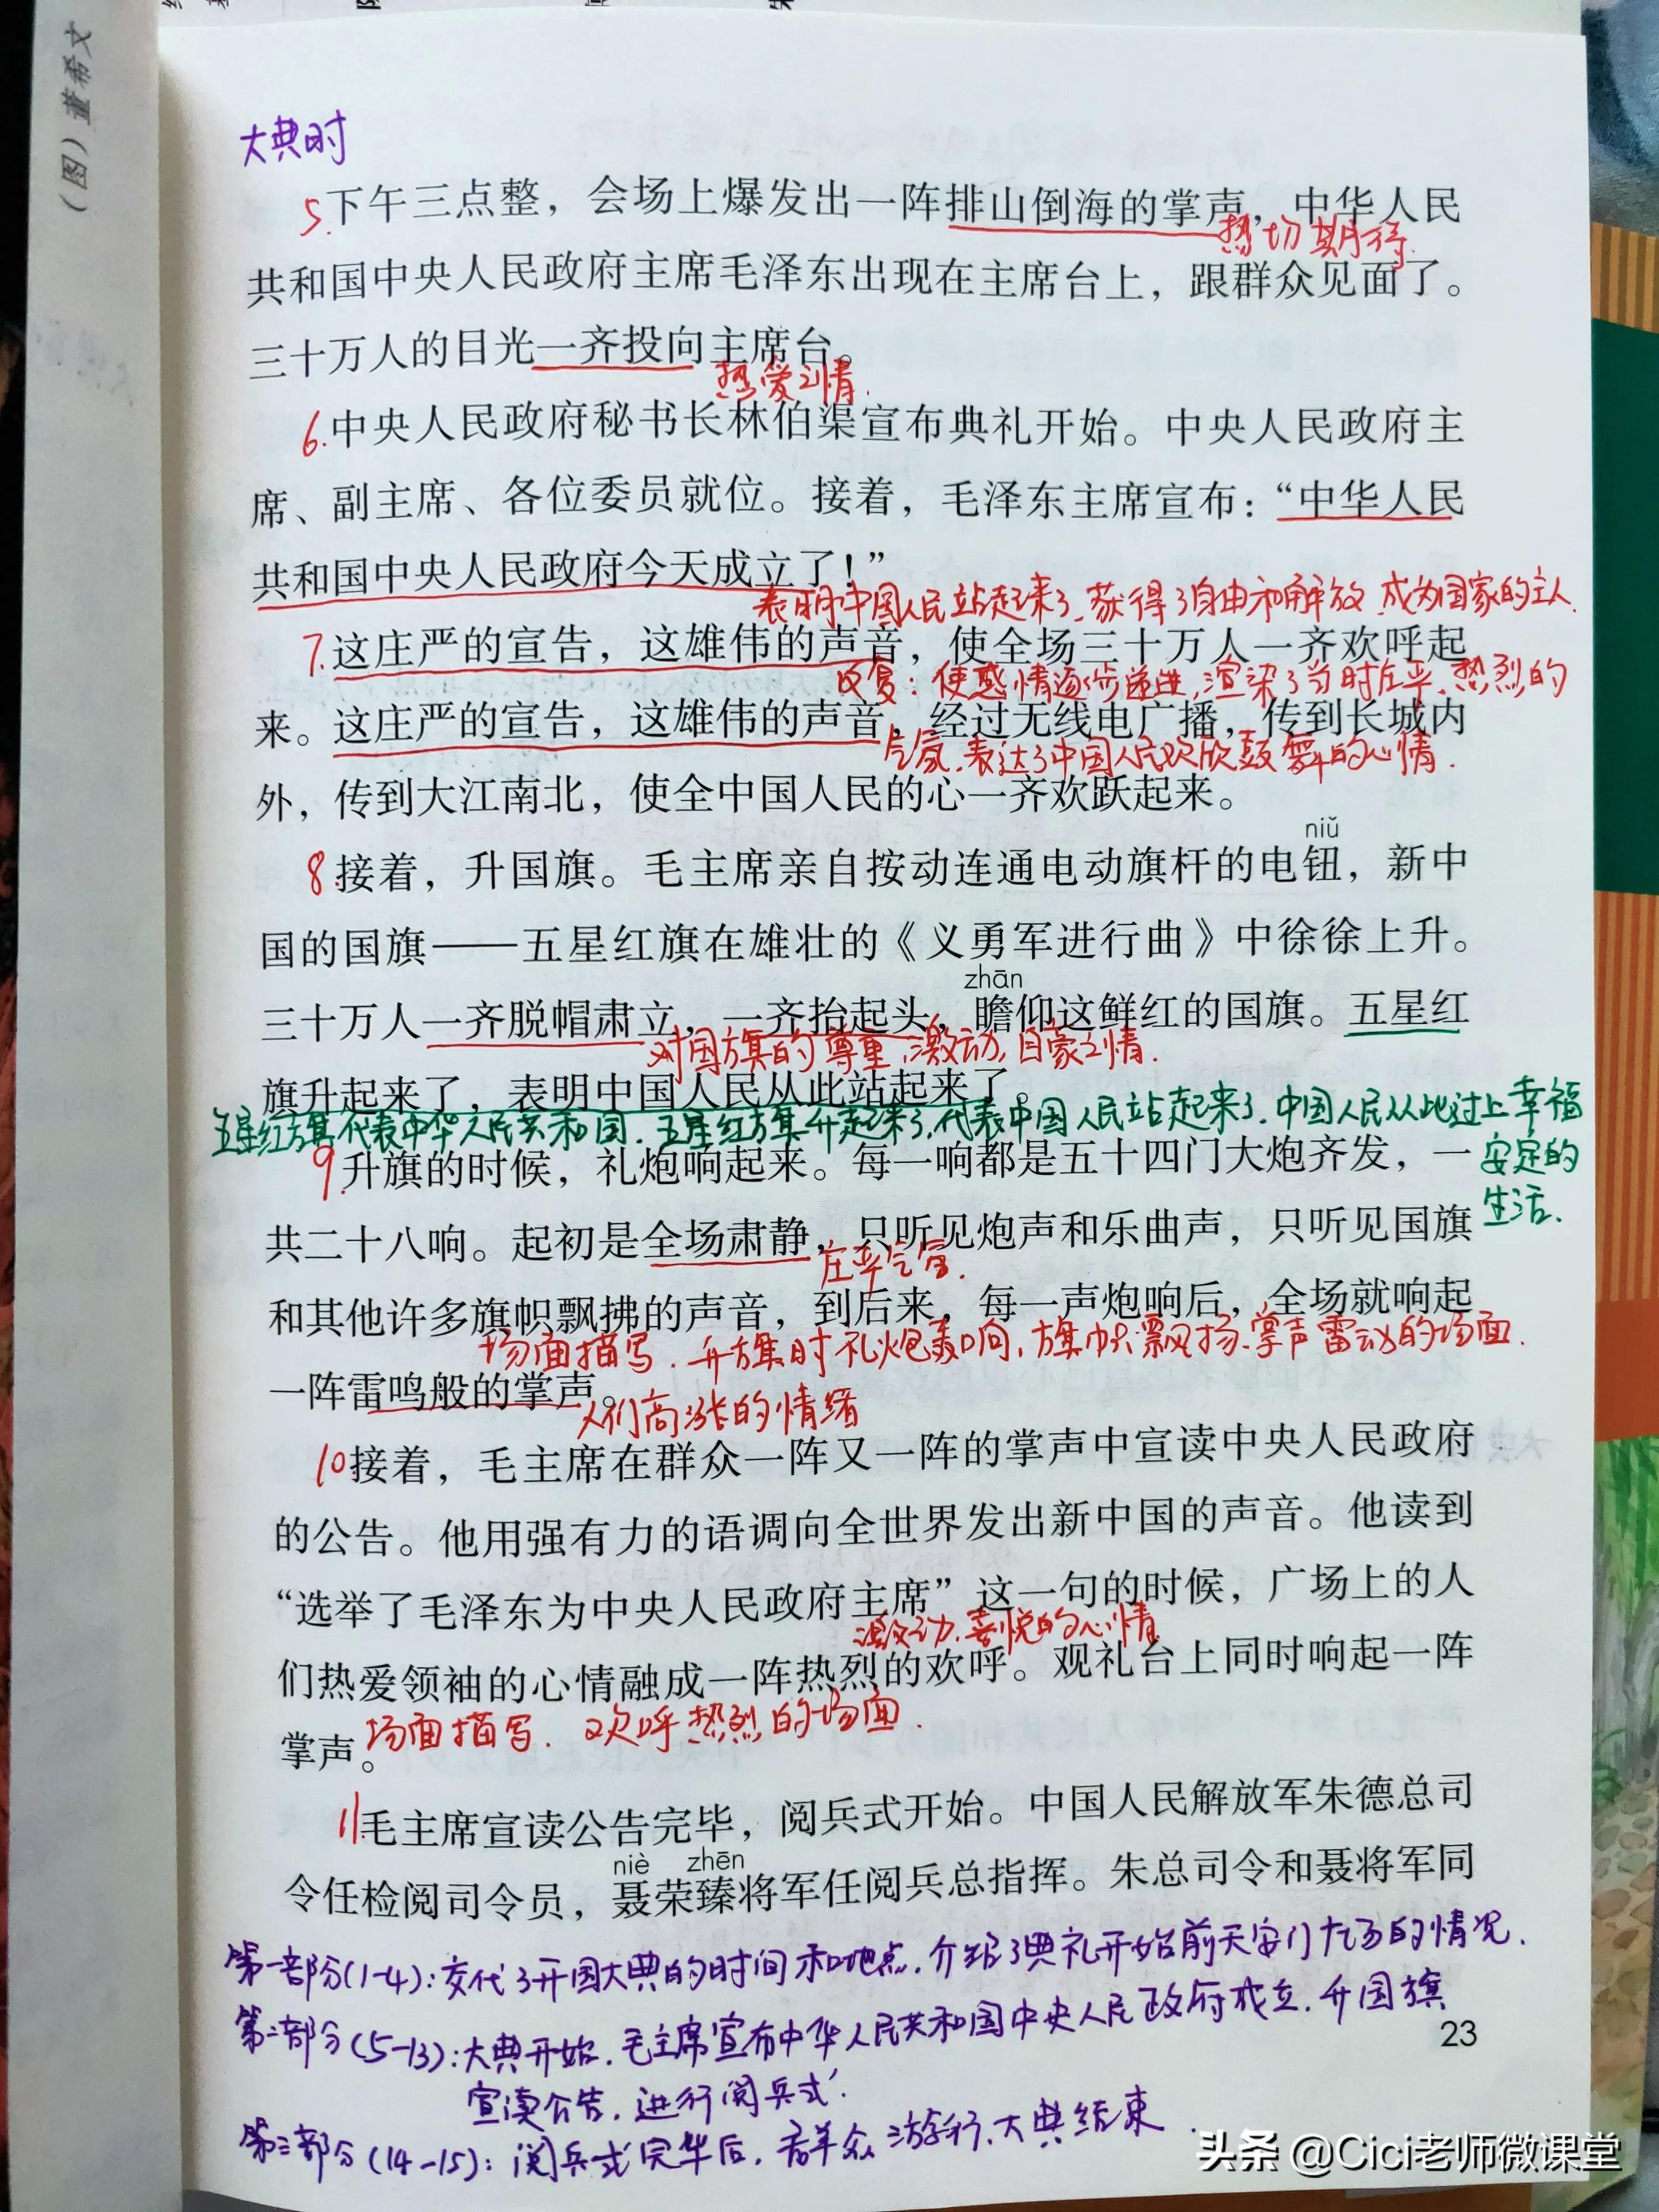 (图)董希文
大典时
5.下午三点整，会场上爆发出一阵排山倒海的掌声，中华人民
热切期待.
共和国中央人民政府主席毛泽东出现在主席台上，跟群众见面了。
三十万人的目光一齐投向主席台。
热爱之情.
6.中央人民政府秘书长林伯渠宣布典礼开始。中央人民政府主
席、副主席、各位委员就位。接着，毛泽东主席宣布：“中华人民
共和国中央人民政府今天成立了！”
表明中国人民站起来了.获得了自由和解放.成为国家的主人.
7.这庄严的宣告，这雄伟的声音，使全场三十万人一齐欢呼起
反复：使感情逐步递进,渲染了当时庄严、热烈的
来。这庄严的宣告，这雄伟的声音，经过无线电广播，传到长城内
气氛.表达了中国人民欢欣鼓舞的心情.
外，传到大江南北，使全中国人民的心一齐欢跃起来。
niǔ
8.接着，升国旗。毛主席亲自按动连通电动旗杆的电钮，新中
国的国旗——五星红旗在雄壮的《义勇军进行曲》中徐徐上升。
zhān
三十万人一齐脱帽肃立，一齐抬起头，瞻仰这鲜红的国旗。五星红
对国旗的尊重,激动,自豪之情.
旗升起来了，表明中国人民从此站起来了。
五星红旗代表中华人民共和国.五星红旗升起来了,代表中国人民站起来了.中国人民从此过上幸福
安定的
生活.
9.升旗的时候，礼炮响起来。每一响都是五十四门大炮齐发，一
共二十八响。起初是全场肃静，只听见炮声和乐曲声，只听见国旗
庄严气氛.
和其他许多旗帜飘拂的声音，到后来，每一声炮响后，全场就响起
场面描写.升旗时礼炮轰响,旗帜飘扬.掌声雷动的场面.
一阵雷鸣般的掌声。
人们高涨的情绪
10.接着，毛主席在群众一阵又一阵的掌声中宣读中央人民政府
的公告。他用强有力的语调向全世界发出新中国的声音。他读到
“选举了毛泽东为中央人民政府主席”这一句的时候，广场上的人
激动.喜悦的心情
们热爱领袖的心情融成一阵热烈的欢呼。观礼台上同时响起一阵
掌声。
场面描写. 欢呼热烈的场面.
11.毛主席宣读公告完毕，阅兵式开始。中国人民解放军朱德总司
niè zhēn
令任检阅司令员，聂荣臻将军任阅兵总指挥。朱总司令和聂将军同
第一部分(1-4):交代了开国大典的时间和地点.介绍了典礼开始前天安门广场的情况.
第二部分(5-13):大典开始.毛主席宣布中华人民共和国中央人民政府成立.升国旗
宣读公告.进行阅兵式.
第三部分(14-15):阅兵式完毕后.群众游行.大典结束.
23
头条 @Cici老师微课堂